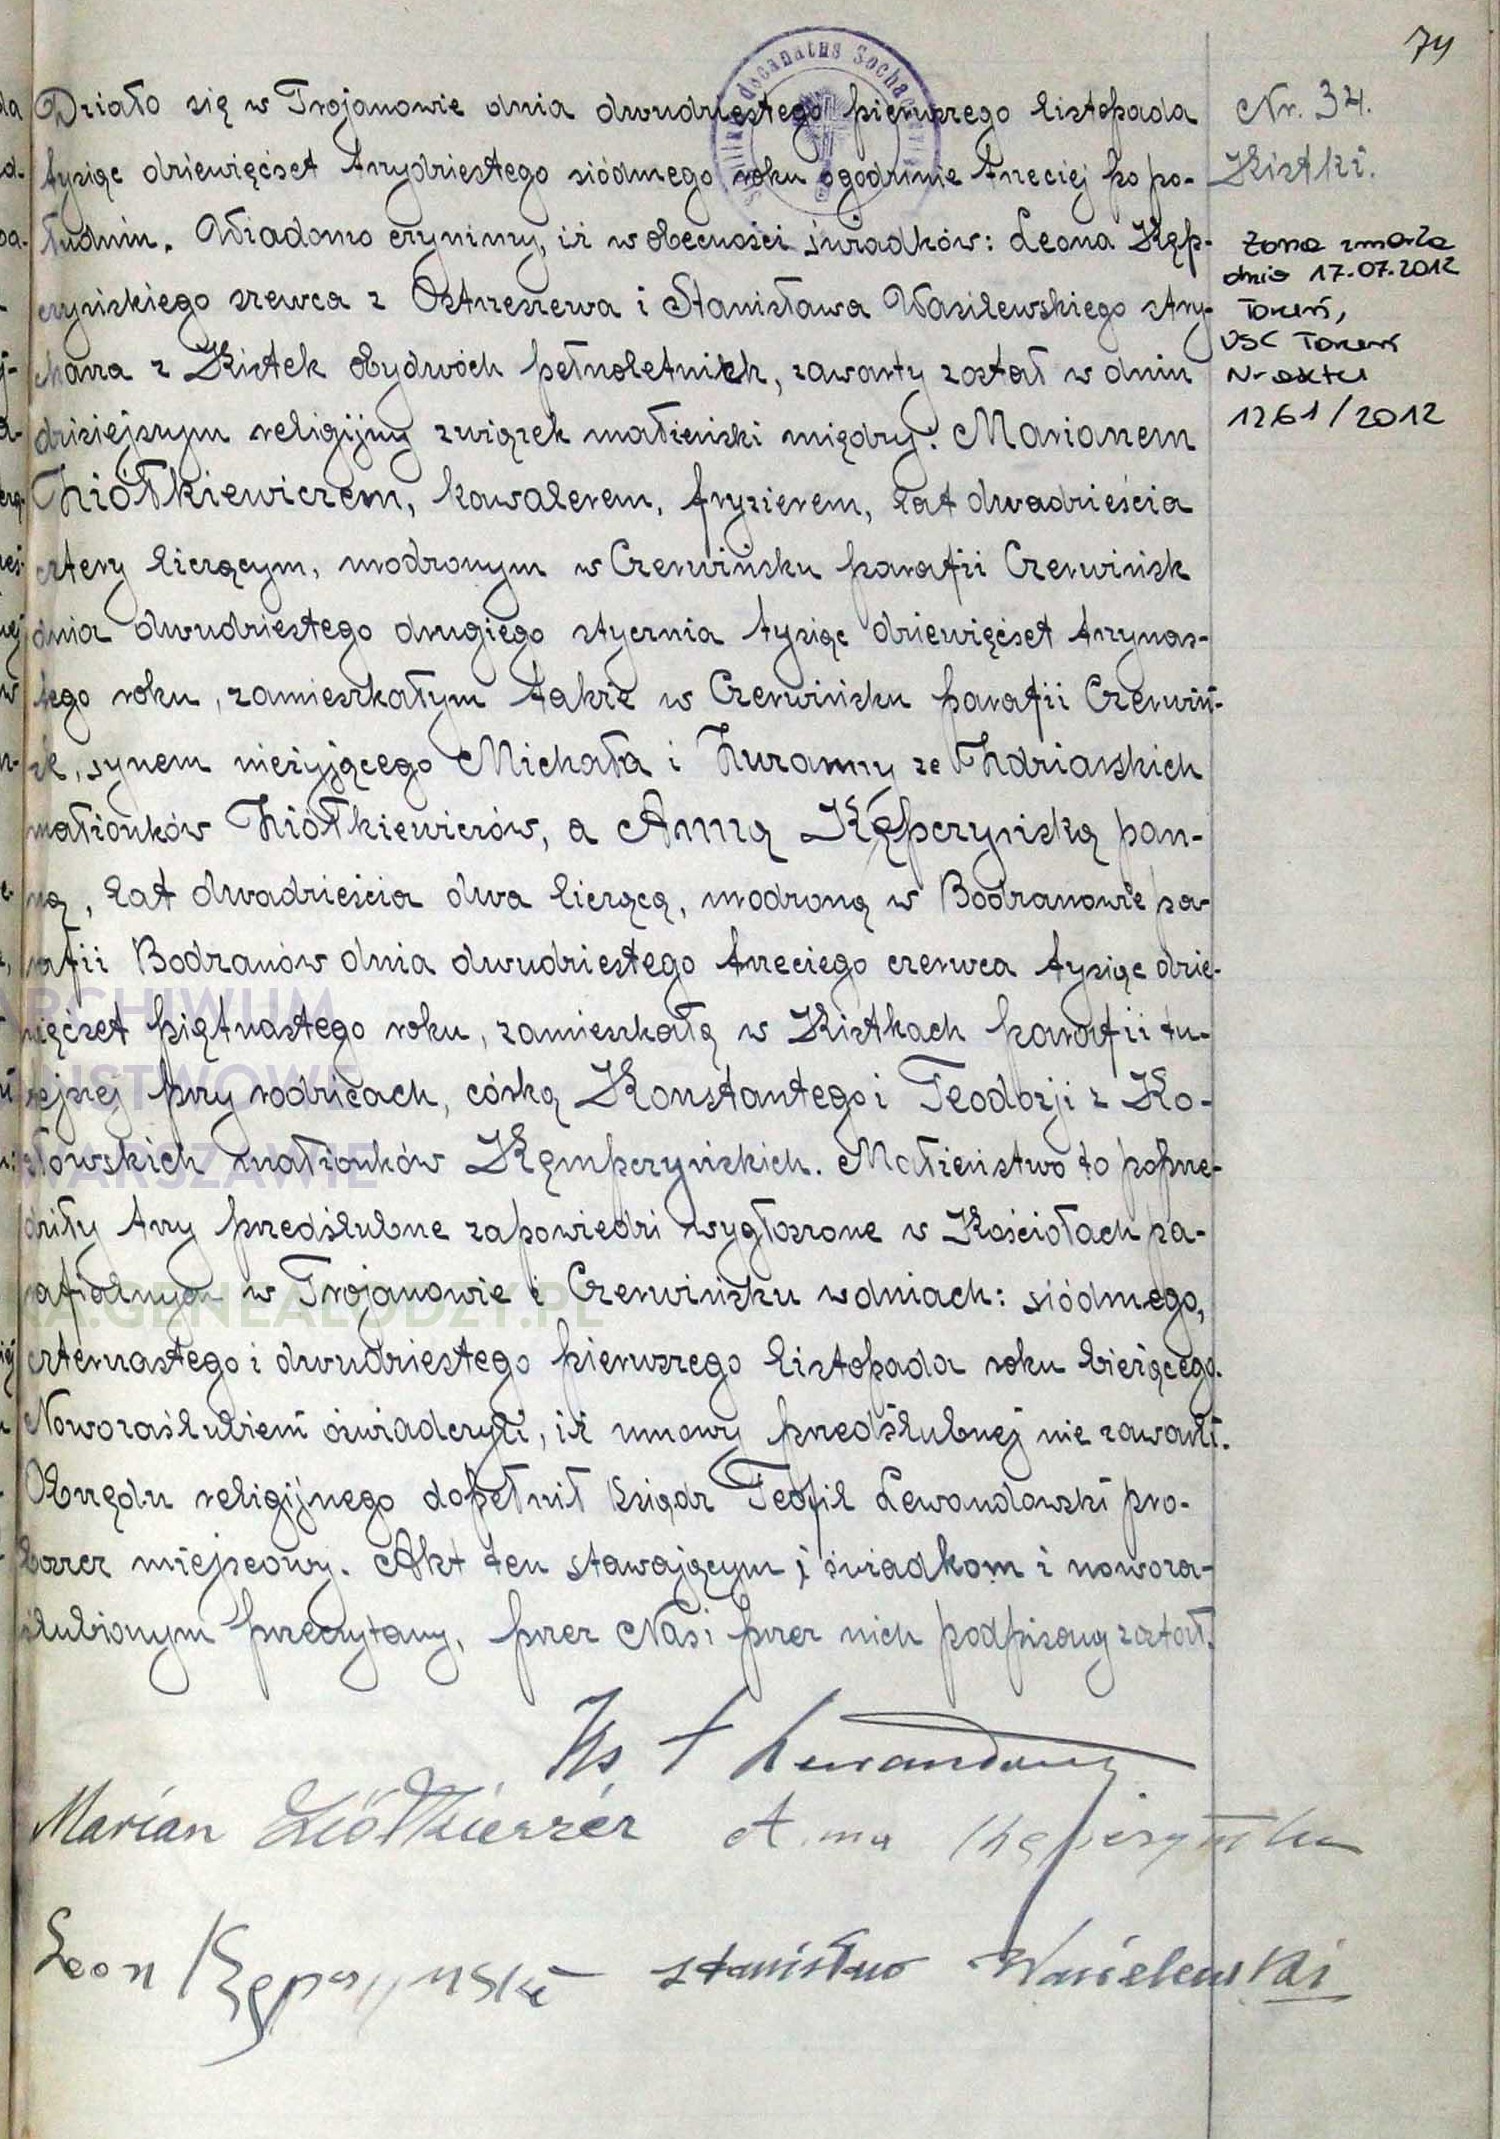 74
Nr. 34.
Kistki.
Żona zmarła
dnia 17.07.2012
Toruń,
USC Toruń
Nr aktu
1261/2012
Działo się w Trojanowie dnia dwudziestego pierwszego listopada
tysiąc dziewięćset trzydziestego siódmego roku o godzinie trzeciej po po-
łudniu. Wiadomo czynimy, iż w obecności świadków: Leona Kęp-
czyńskiego szewca z i Stanisława Wasilewskiego stry-
charza z Kistek obydwóch pełnoletnich, zawarty został w dniu
dzisiejszym religijny związek małżeński między: Marianem
Ziółkiewiczem, kawalerem, fryzjerem, lat dwadzieścia
cztery liczącym, urodzonym w Czerwińsku parafii Czerwińsk
dnia dwudziestego drugiego stycznia tysiąc dziewięćset trzynas-
tego roku, zamieszkałym także w Czerwińsku parafii Czerwiń-
sk, synem nieżyjącego Michała i Zuzanny ze Zdziarskich
małżonków Ziółkiewiczów, a Anną Kępczyńską pan-
ną, lat dwadzieścia dwa liczącą, urodzoną w Bodzanowie pa-
rafii Bodzanów dnia dwudziestego trzeciego czerwca tysiąc dzie-
więćset piętnastego roku, zamieszkałą w Kistkach parafii tu-
tejszej przy rodzicach, córką Konstantego i Teodozji z Ko-
złowskich małżonków Kempczyńskich. Małżeństwo to poprze-
dziły trzy przedślubne zapowiedzi wygłoszone w Kościołach pa-
rafialnych w Trojanowie i Czerwińsku w dniach: siódmego,
czternastego i dwudziestego pierwszego listopada roku bieżącego.
Nowozaślubieni oświadczyli, iż umowy przedślubnej nie zawarli.
Obrzędu religijnego dopełnił Ksiądz Teofil Lewandowski pro-
boszcz miejscowy. Akt ten stawającym i świadkom i nowoza-
ślubionym przeczytany, przez Nas i przez nich podpisany został.
Ks T Lewandowski
Marian Anna Kępczyńska
Leon Kępczyński Stanisław Wasielewski
ARCHIWUM
PAŃSTWOWE
WARSZAWIE
GENEALODZY.PL